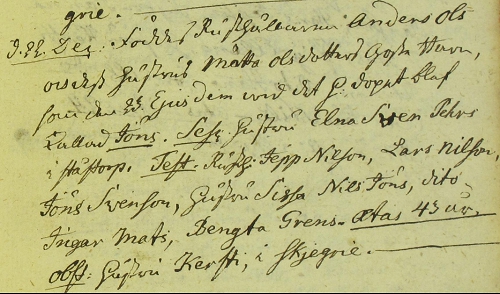 grie.
d. 22 Dec: Föddes Rusthållaren Anders Ols
sons och Hustrus Mätta Olsdotters Goße Barn,
som den 23. Ejusdem wid det H. dopet blef
kallad Jöns. Susc: Hustru Elna Swen Pehrs
i Håstorp. Test: Rusth: Jepp Nilson, Lars Nilson,
Jöns Swenson, Hustru Sissa Nils Jöns, dito
Ingar Mats, Bengta Trens. Ætas 43 år
obst: Hustru Kersti, i Skjegrie.